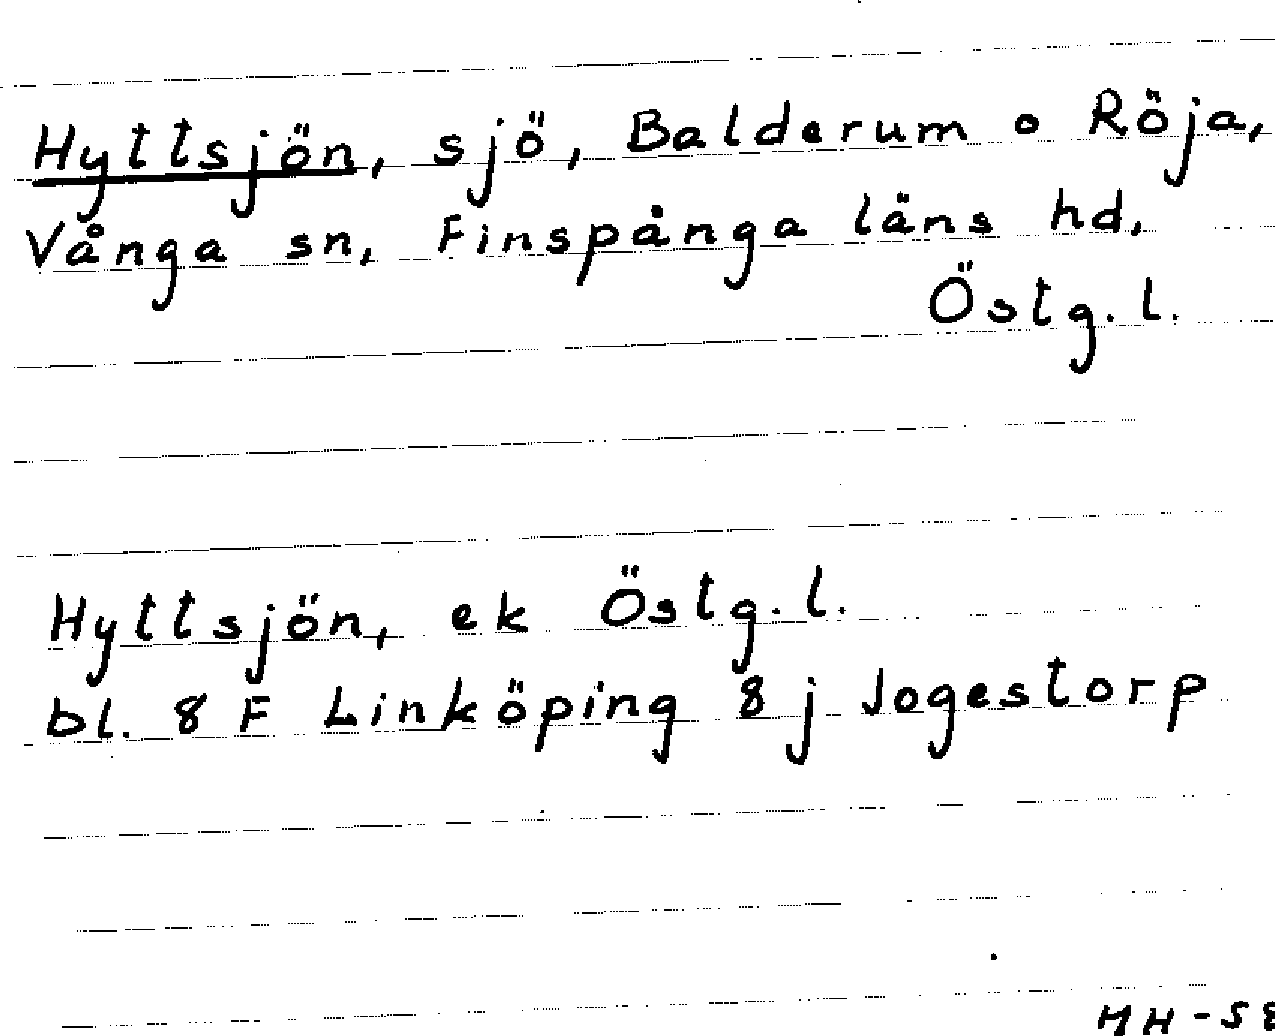 Hyttsjön, sjö, Balderum o Röja,
Vånga sn, Finspånga läns hd,
Östg. l.
Hyttsjön, ek Östg. l.
bl. 8 F Linköping 8 j Jogestorp